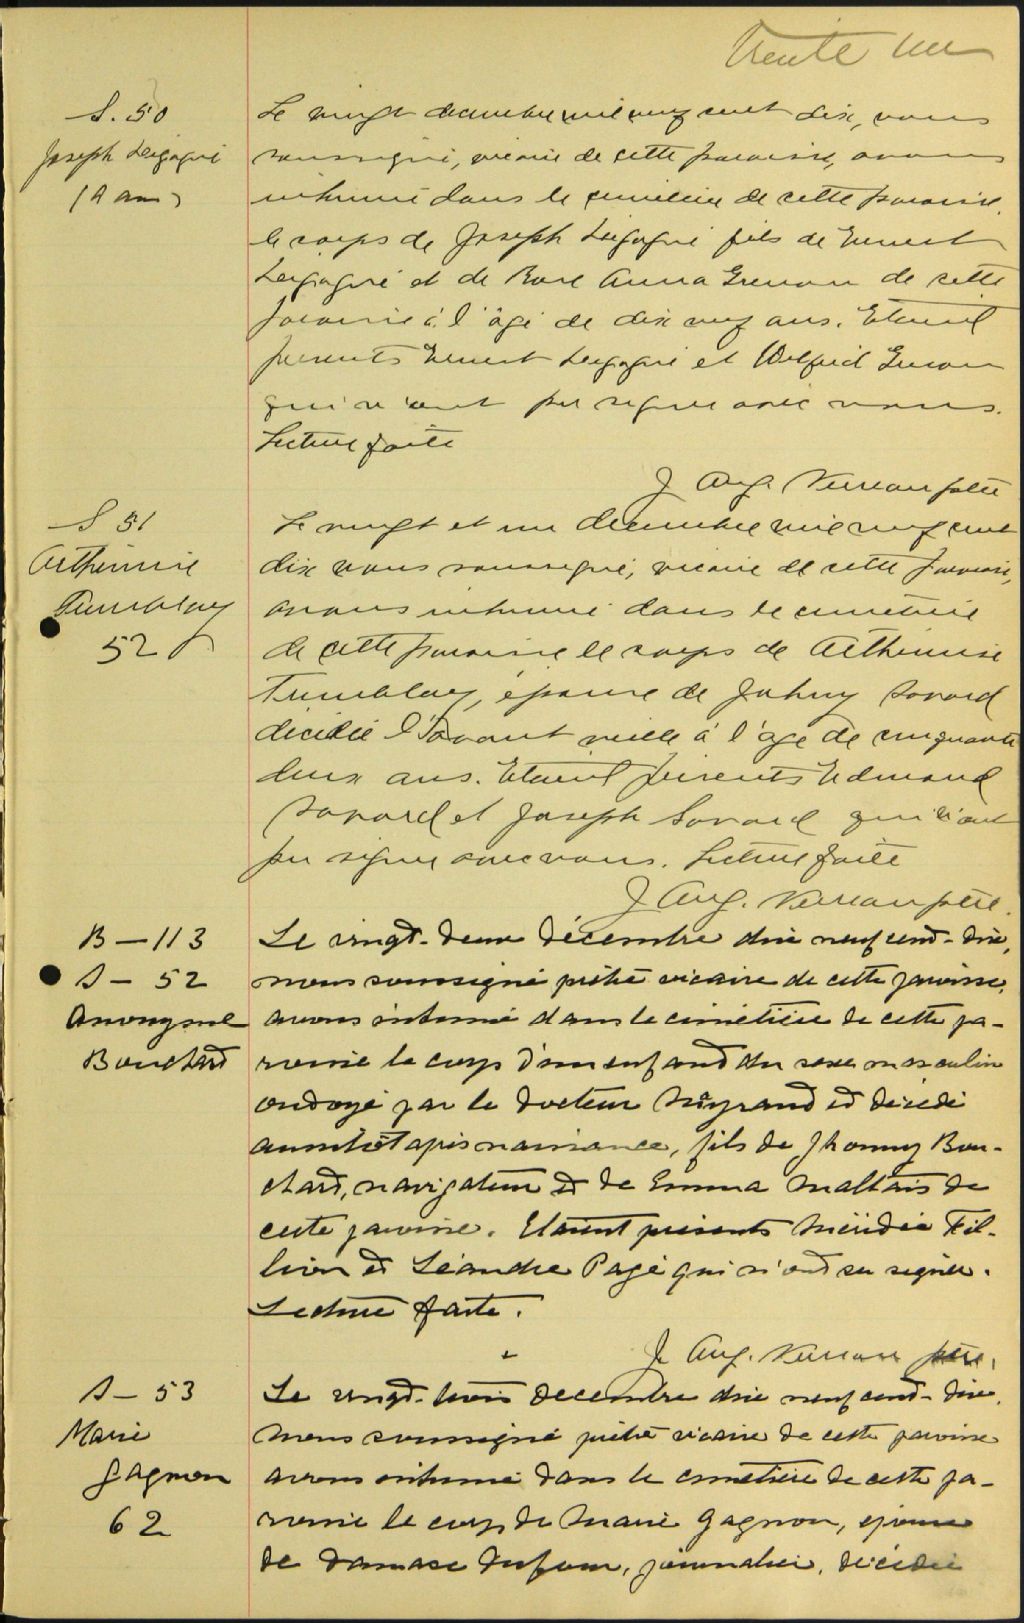 Trente un
S. 50
Joseph
19 ans
Le vingt décembre mil neuf cent dix, nous
soussigné, vicaire de cette paroisse, avons
inhumé dans le cimetière de cette paroisse
le corps de Joseph fils de Ernest
et de Rose Anna Grenon de cette
paroisse à l'âge de dix neuf ans. Etaient
présents Ernest et Wilfrid Grenon
qui n'ont pu signer avec nous.
Lecture faite
J Aug. ptre
S 51
Arthémise
Tremblay
52
Le vingt et un décembre mil neuf cent
dix nous soussigné, vicaire de cette paroisse,
avons inhumé dans le cimetière
de cette paroisse le corps de Arthémise
Tremblay, épouse de Johny Savard
décédée l'avant veille à l'âge de cinquante
deux ans. Etaient présents Edmond
Savard et Joseph Savard qui n'ont
pu signer avec nous. Lecture faite
J Aug. ptre.
B — 113
S — 52
Anonyme
Bouchard
Le vingt-deux décembre mil neuf cent-dix,
nous soussigné prêtre vicaire de cette paroisse,
avons inhumé dans le cimetière de cette pa-
roisse le corps d'un enfant du sexe masculin
ondoyé par le docteur et décédé
aussitôt après naissance, fils de Jhonny Bou-
chard, navigateur et de Emma Maltais de
cette paroisse. Etaient présents Méridée Fil-
lion et Léandre Pagé qui n'ont su signer.
Lecture faite.
J. Aug. ptre.
S — 53
Marie
Gagnon
62
Le vingt-trois décembre mil neuf cent-dix,
nous soussigné prêtre vicaire de cette paroisse
avons inhumé dans le cimetière de cette pa-
roisse le corps de Marie Gagnon, épouse
de Damase Dufour, journalier, décédée